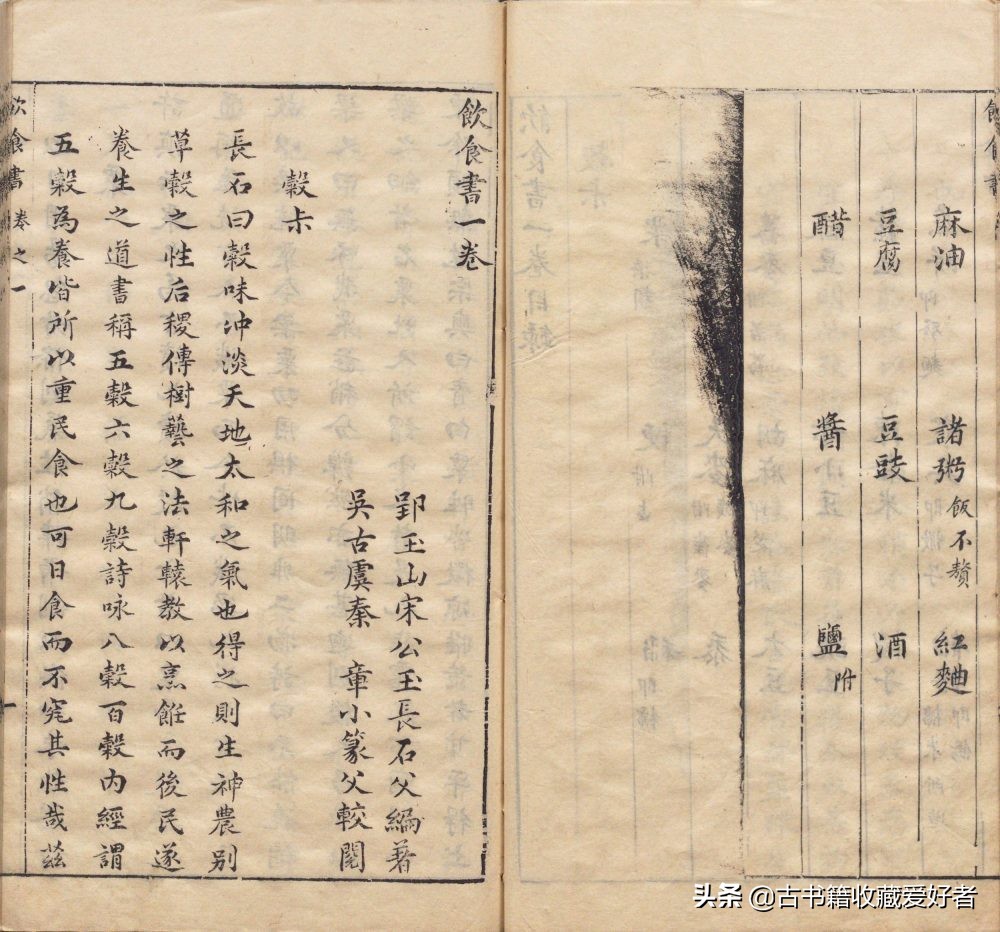 麻油 諸粥飯不贅 紅麯
豆腐 豆豉 酒
醋 醬 鹽附
飲食書一卷
郢玉山宋公玉長石父編著
吳古虞秦 章小篆父較閱
穀部
長石曰穀味冲淡天地太和之氣也得之則生神農别
草穀之性后稷傳樹藝之法軒轅教以烹餁而後民遂
養生之道書稱五穀六穀九穀詩咏八穀百穀内經謂
五穀為養皆所以重民食也可日食而不究其性哉茲
飲食書 卷之一 一
头条 @古书籍收藏爱好者